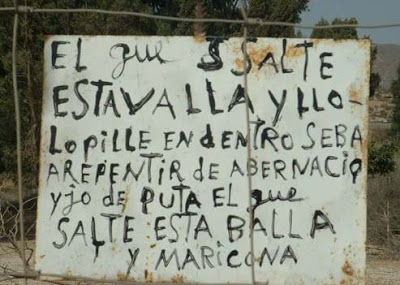 EL que SSALTE
ESTAVALLA Y LLO-
LO PILLE EN dENTRO SE BA
AREPENTIR de ABERNACIO
YJO de PUTA EL que
SALTE ESTA BALLA
Y MARICONA